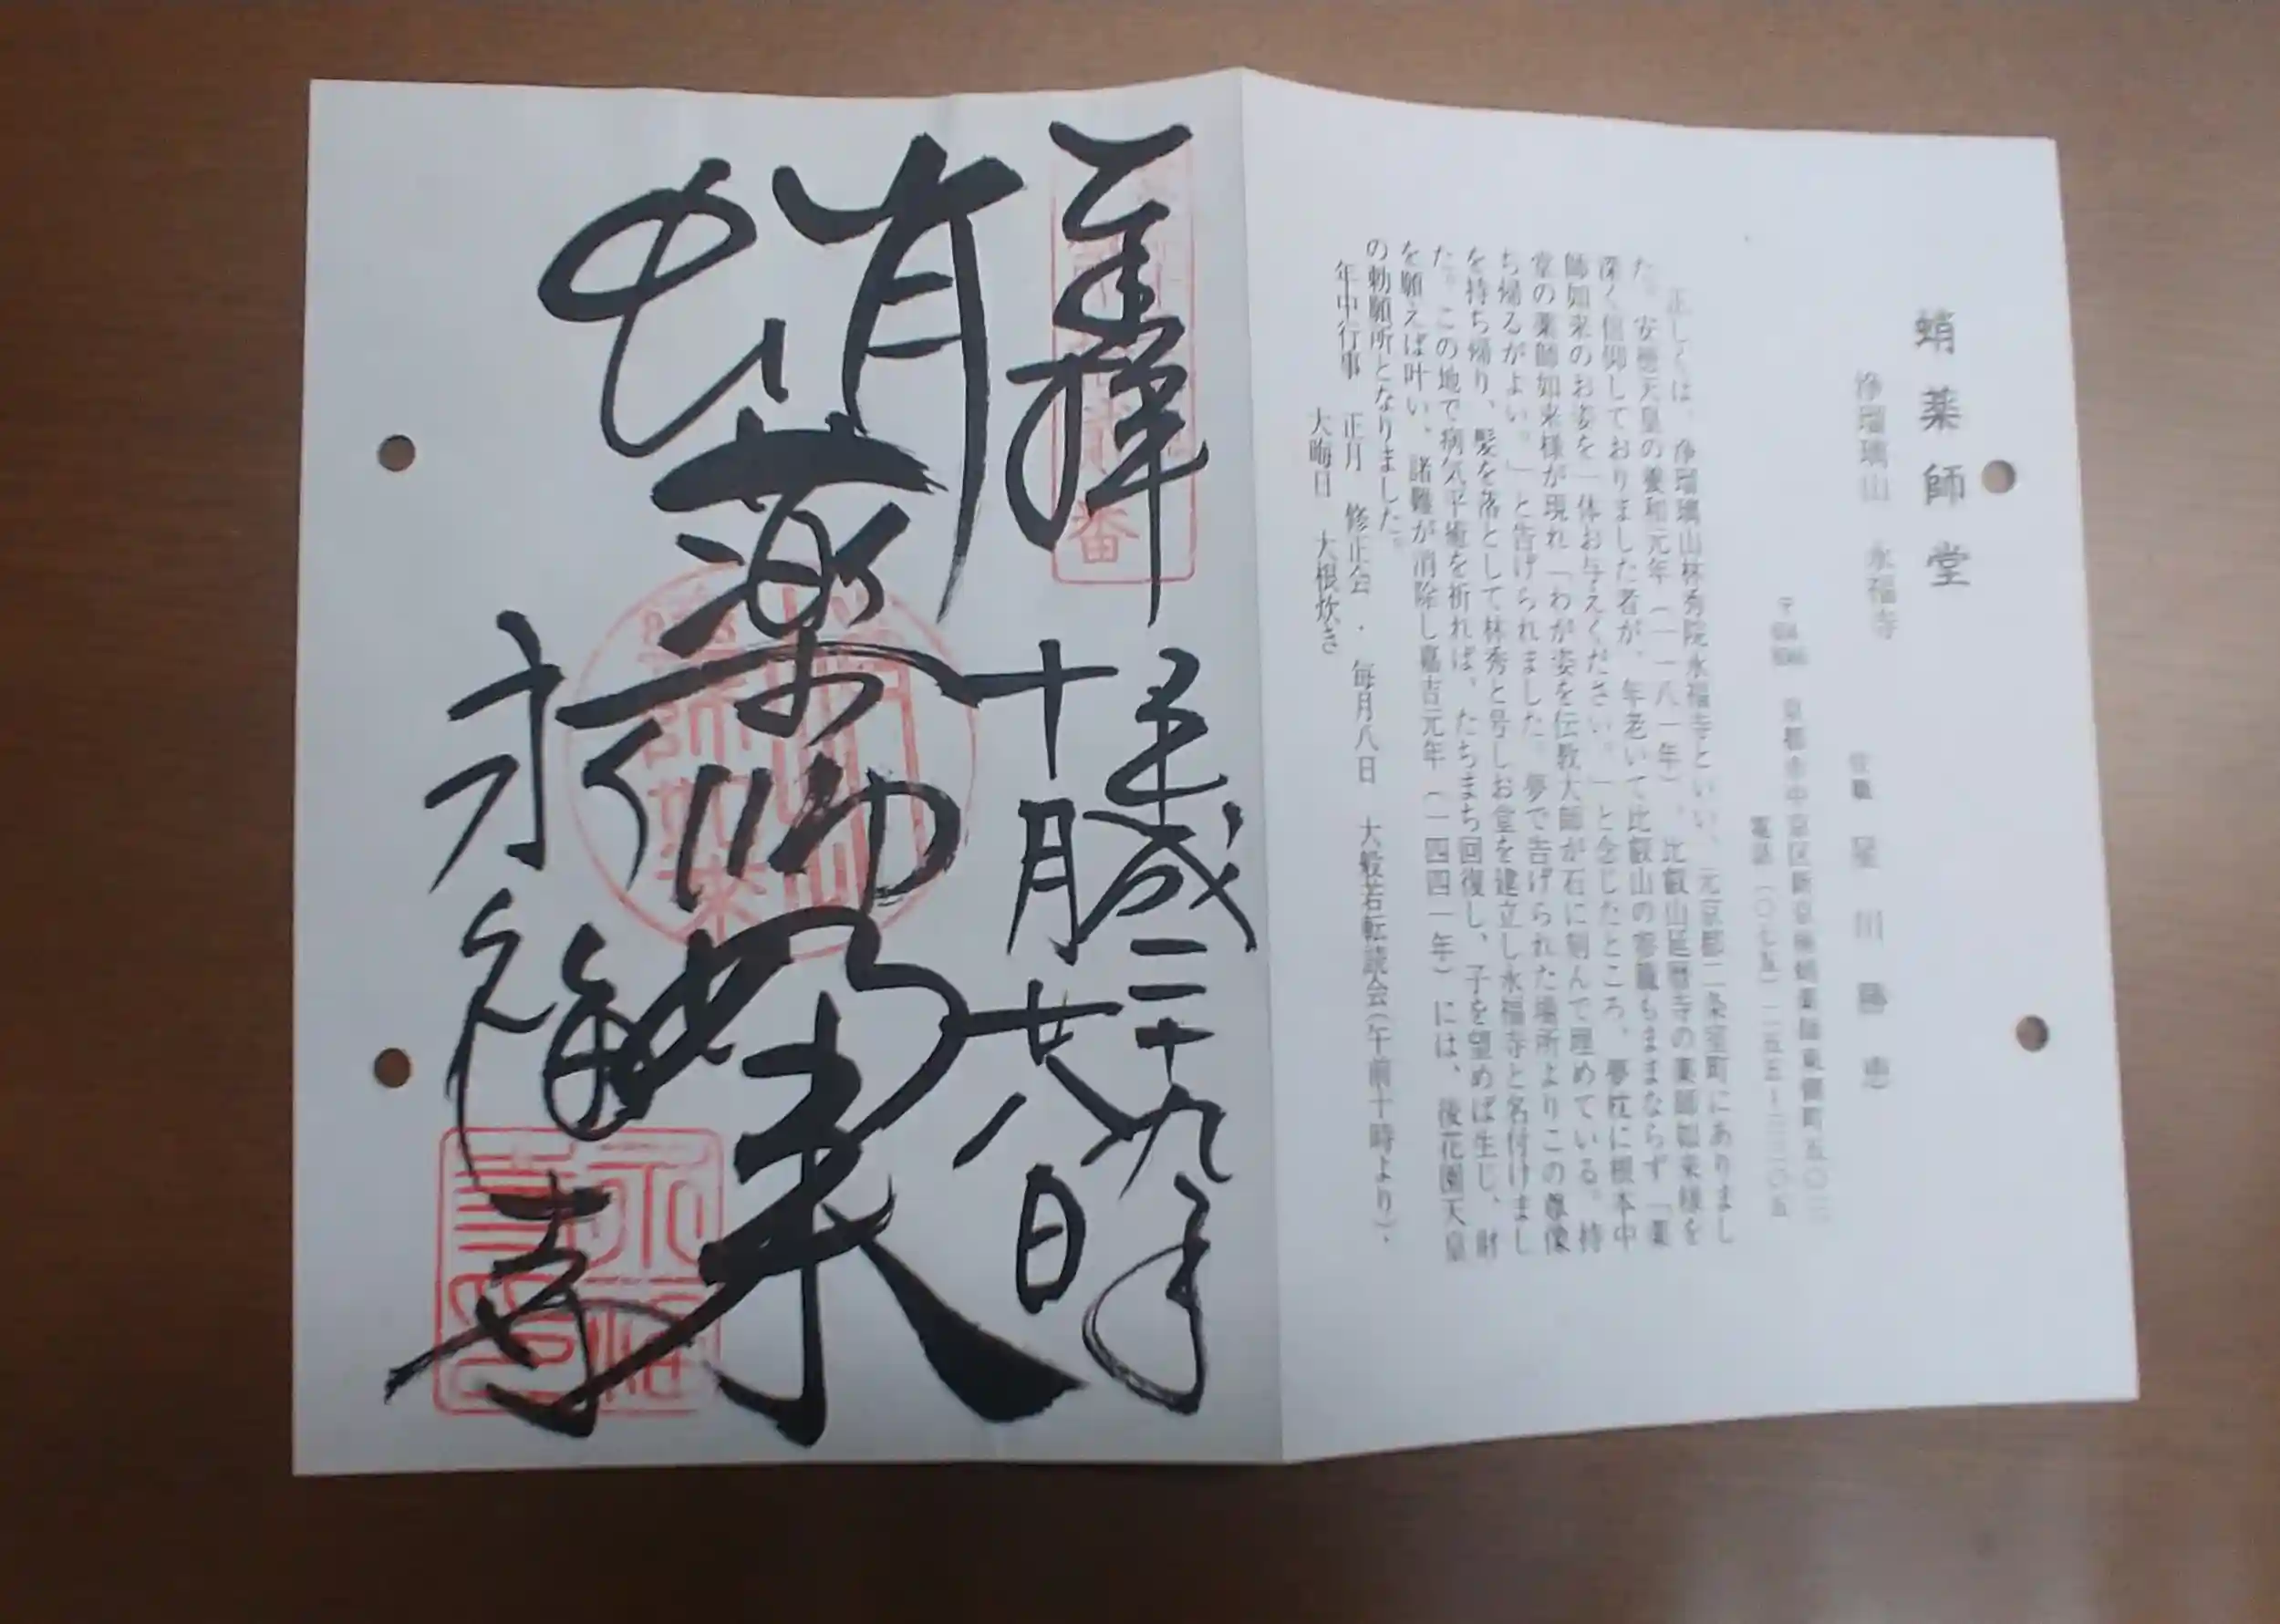 蛸薬師堂
浄瑠璃山 永福寺
住職 星川
京都市中京区新京極蛸薬師東側町五〇三
電話(〇七五)二五五-三三〇五
正しくは、浄瑠璃山林秀院永福寺といい、元京都二条室町にありまし
た。安徳天皇の養和元年(一一八一年)、比叡山延暦寺の薬師如来様を
深く信仰しておりました者が、年老いて比叡山の参籠もままならず「薬
師如来のお姿を一体お与えください。」と念じたところ、夢枕に根本中
堂の薬師如来様が現れ「わが姿を伝教大師が石に刻んで埋めている。持
ち帰るがよい。」と告げられました。夢で告げられた場所よりこの尊像
を持ち帰り、髪を落として林秀と号しお堂を建立し永福寺と名付けまし
た。この地で病気平癒を祈れば、たちまち回復し、子を望めば生じ、財
を願えば叶い、諸難が消除し嘉吉元年(一四四一年)には、後花園天皇
の勅願所となりました。
年中行事 正月 修正会 ・ 毎月八日 大般若転読会(午前十時より)、
大晦日 大根炊き
奉拝 平成二十九年
十月廿八日
蛸薬師如来
永福寺